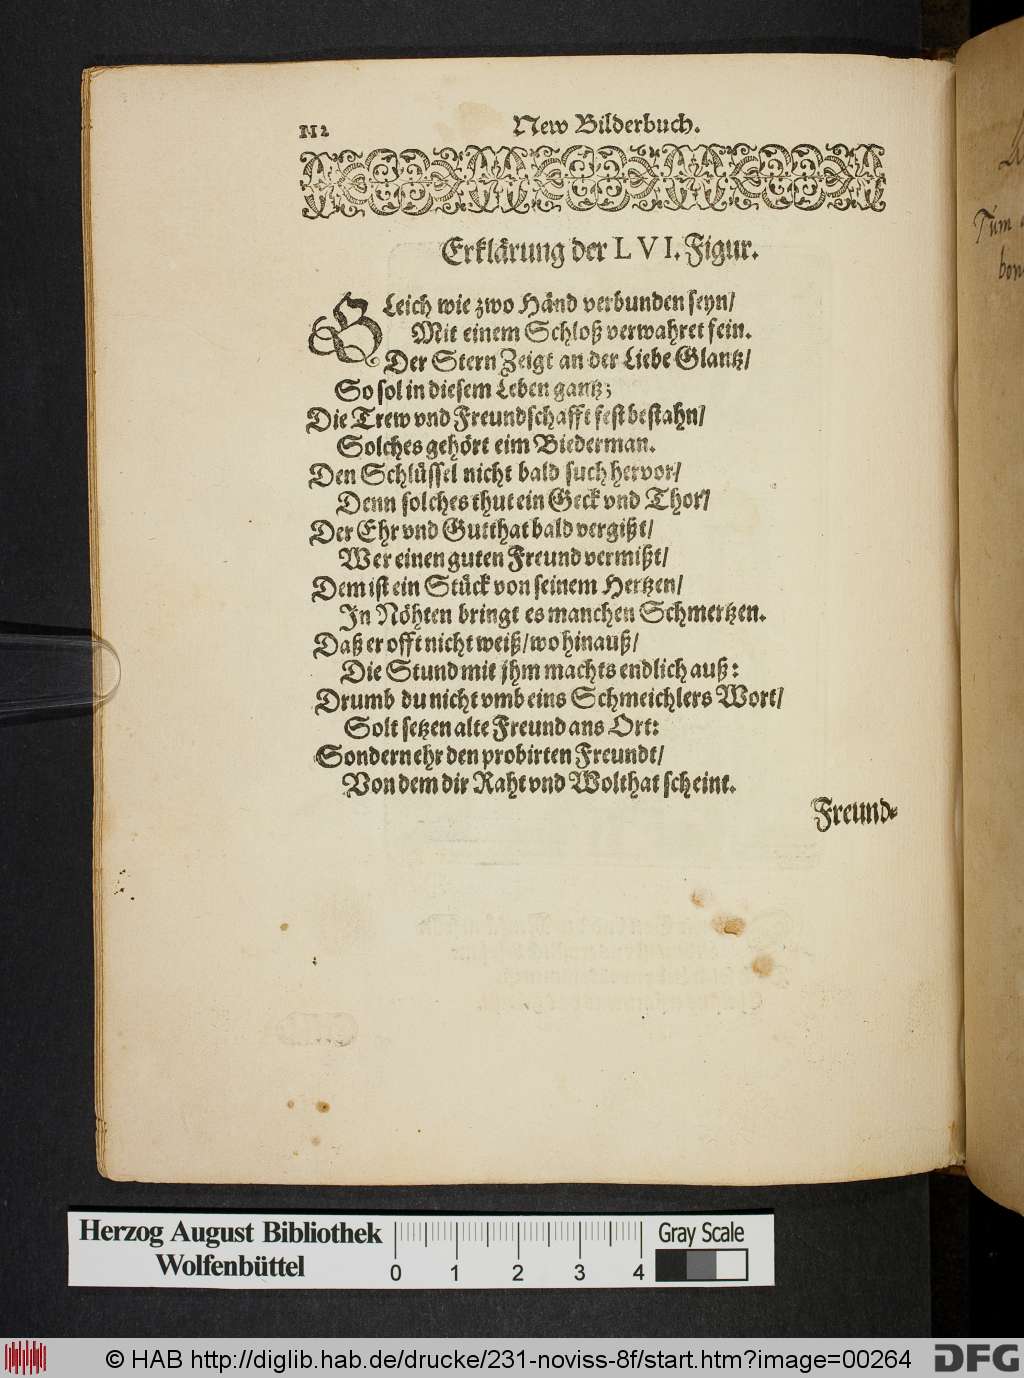 112
New Bilderbuch.
Erklärung der LVI. Figur.
GLeich wie zwo Händ verbunden seyn/
Mit einem Schloß verwahret fein.
Der Stern Zeigt an der Liebe Glantz/
So sol in diesem Leben gantz;
Die Trew vnd Freundschafft fest bestahn/
Solches gehört eim Biederman.
Den Schlüssel nicht bald such hervor/
Denn solches thut ein Geck vnd Thor/
Der Ehr vnd Gutthat bald vergißt/
Wer einen guten Freund vermißt/
Dem ist ein Stück von seinem Hertzen/
In Nöhten bringt es manchen Schmertzen.
Daß er offt nicht weiß/ wo hinauß/
Die Stund mit jhm machts endlich auß:
Drumb du nicht vmb eins Schmeichlers Wort/
Solt setzen alte Freund ans Ort:
Sondern ehr den probirten Freundt/
Von dem dir Raht vnd Wolthat scheint.
Freund-
Tum
bon
Herzog August Bibliothek
Wolfenbüttel
0 1 2 3 4
Gray Scale
© HAB http://diglib.hab.de/drucke/231-noviss-8f/start.htm?image=00264
DFG